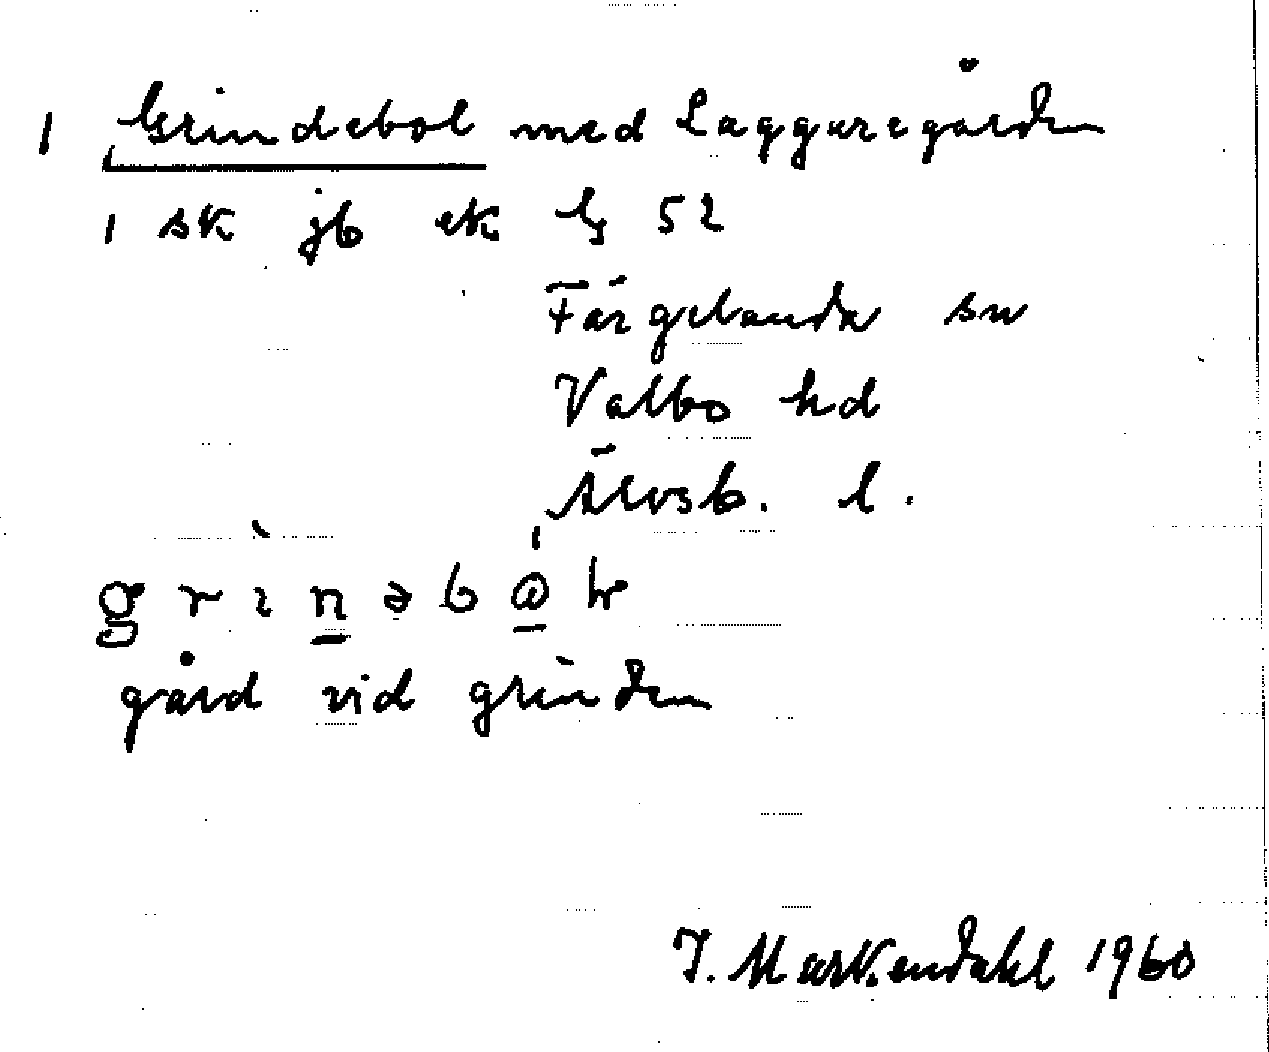 1 Grindebol med Laggaregården
1 sk jb ek bl 52
Färgelanda sn
Valbo hd
Älvsb. l.
gård vid grinden
J. Markendahl 1960